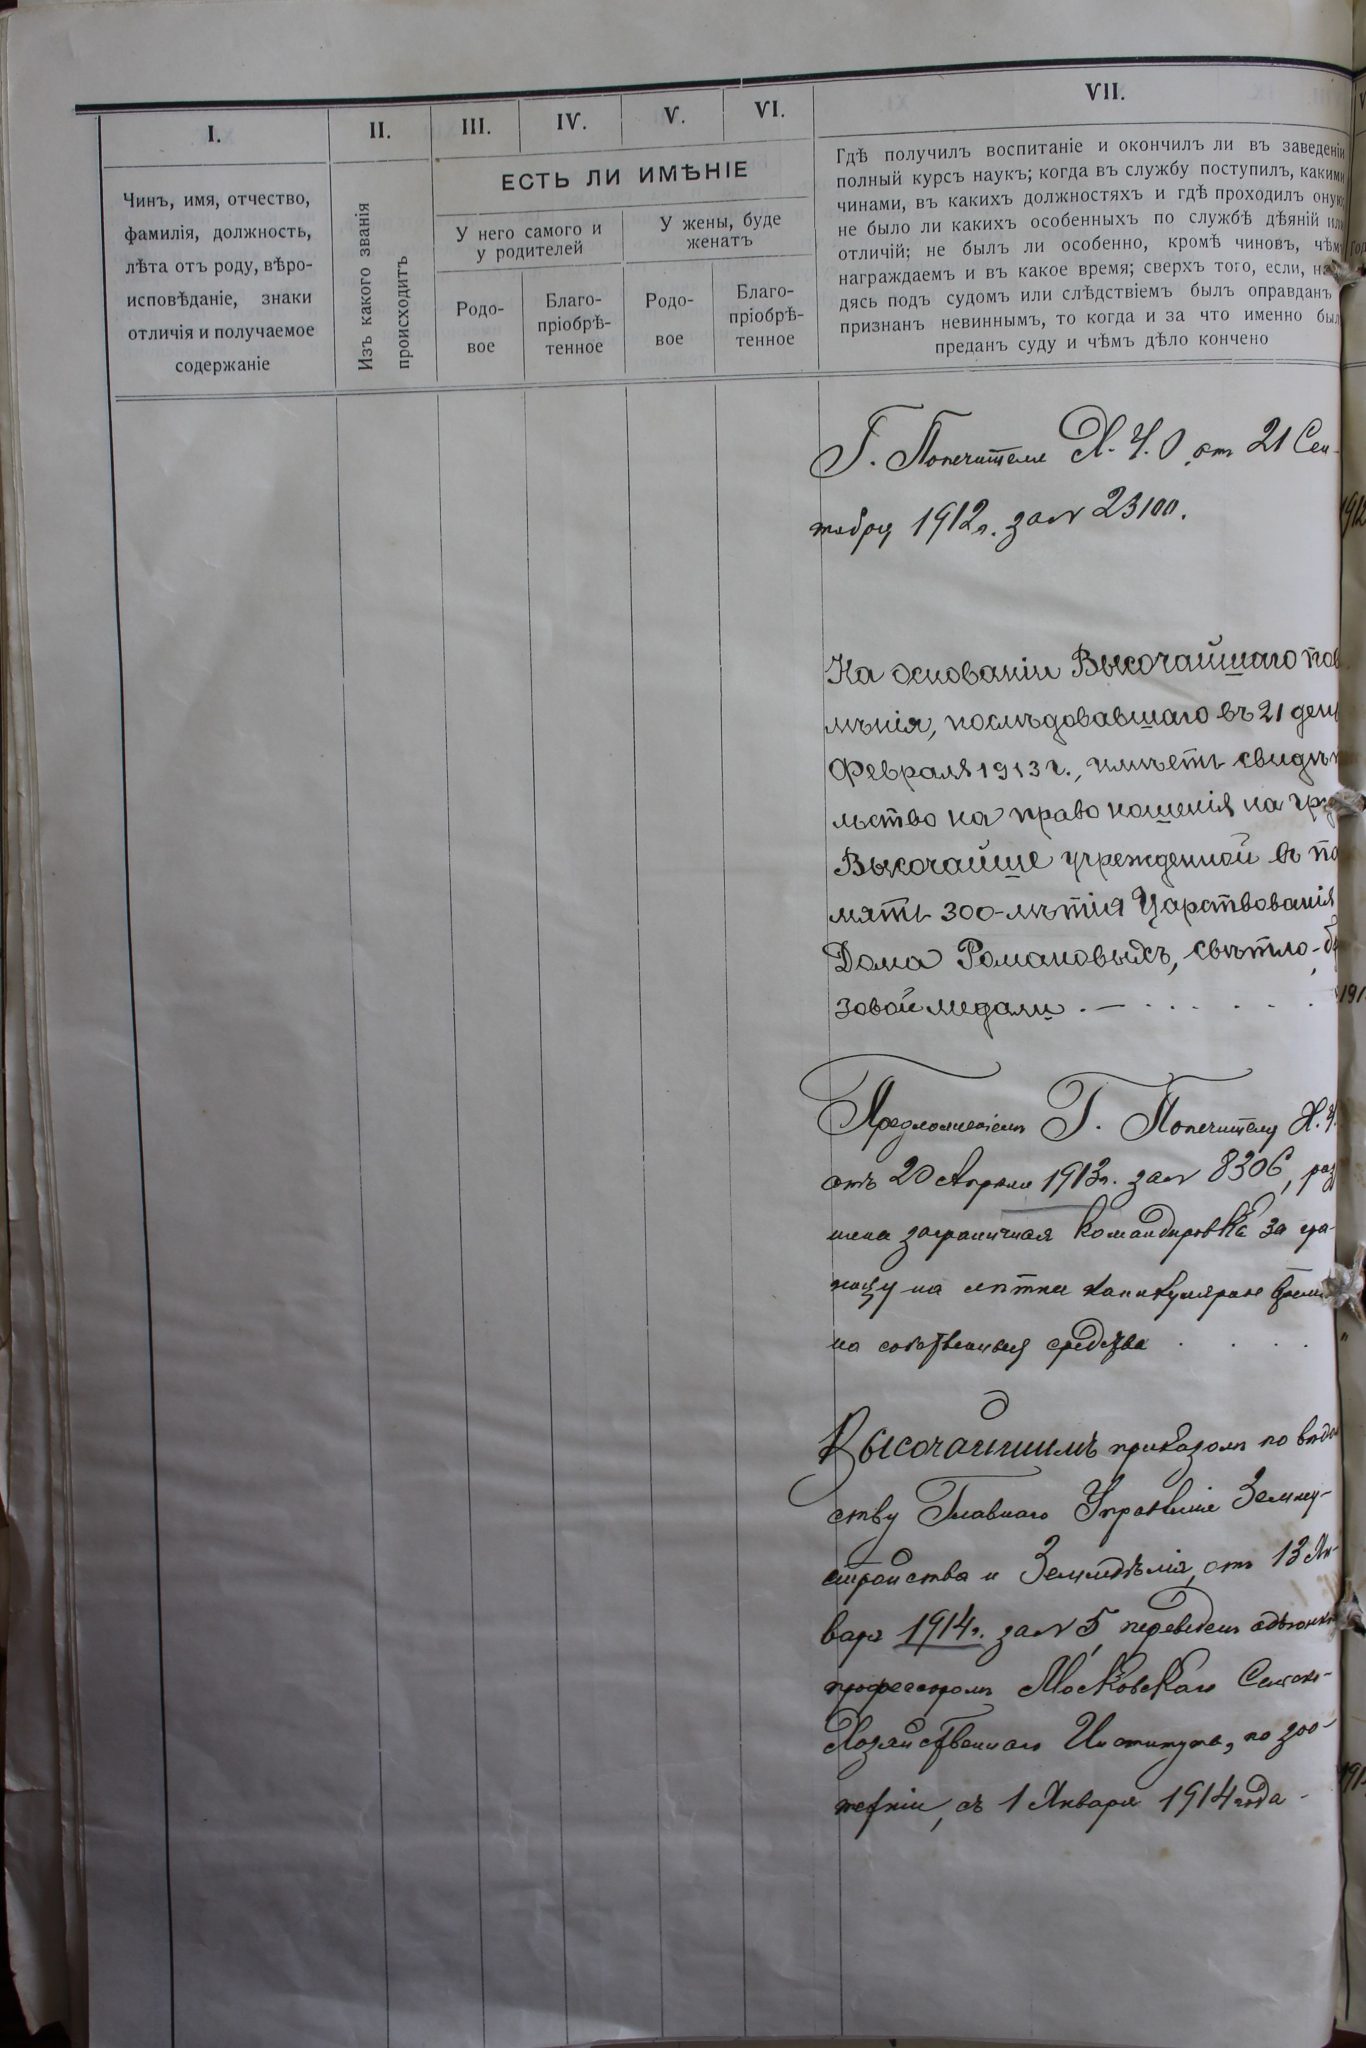 I.
II.
III.
IV.
V.
VI.
VII.
Чинъ, имя, отчество,
фамилія, должность,
лѣта отъ роду, вѣро-
исповѣданіе, знаки
отличія и получаемое
содержаніе
Изъ какого званія
происходитъ
ЕСТЬ ЛИ ИМѢНІЕ
У него самого и
у родителей
У жены, буде
женатъ
Родо-
вое
Благо-
пріобрѣ-
тенное
Родо-
вое
Благо-
пріобрѣ-
тенное
Гдѣ получилъ воспитаніе и окончилъ ли въ заведеніи
полный курсъ наукъ; когда въ службу поступилъ, какими
чинами, въ какихъ должностяхъ и гдѣ проходилъ оную;
не было ли какихъ особенныхъ по службѣ дѣяній или
отличій; не былъ ли особенно, кромѣ чиновъ, чѣмъ
награждаемъ и въ какое время; сверхъ того, если,
дясь подъ судомъ или слѣдствіемъ былъ оправданъ
признанъ невиннымъ, то когда и за что именно был
преданъ суду и чѣмъ дѣло кончено
Г. Попечителя Х. У. О. отъ 21 Сен-
тября 1912 г. за № 23100.
На основаніи Высочайшаго пов
лѣнія, послѣдовавшаго въ 21 день
Февраля 1913 г., имѣетъ свидѣт
льство на право ношенія на гру
Высочайше учрежденной въ па
мять 300-лѣтія Царствованія
Дома Романовыхъ, свѣтло-б
зовой медали . — . . . .
Предложеніемъ Г. Попечителя Х. У.
отъ 20 Апрѣля 1913 г. за № 8306, раз
шена заграничная командировка за гра-
ницу на лѣтнее каникулярное время
на собственныя средства . . . .
Высочайшимъ приказомъ по вѣдом
ству Главнаго Управленія Землеу-
стройства и Земледѣлія, отъ 13 Ян-
варя 1914 г. за № 5, переведенъ адъюнктъ
профессоромъ Московскаго Сельско-
Хозяйственнаго Института, по зоо-
техніи, съ 1 Января 1914 года -